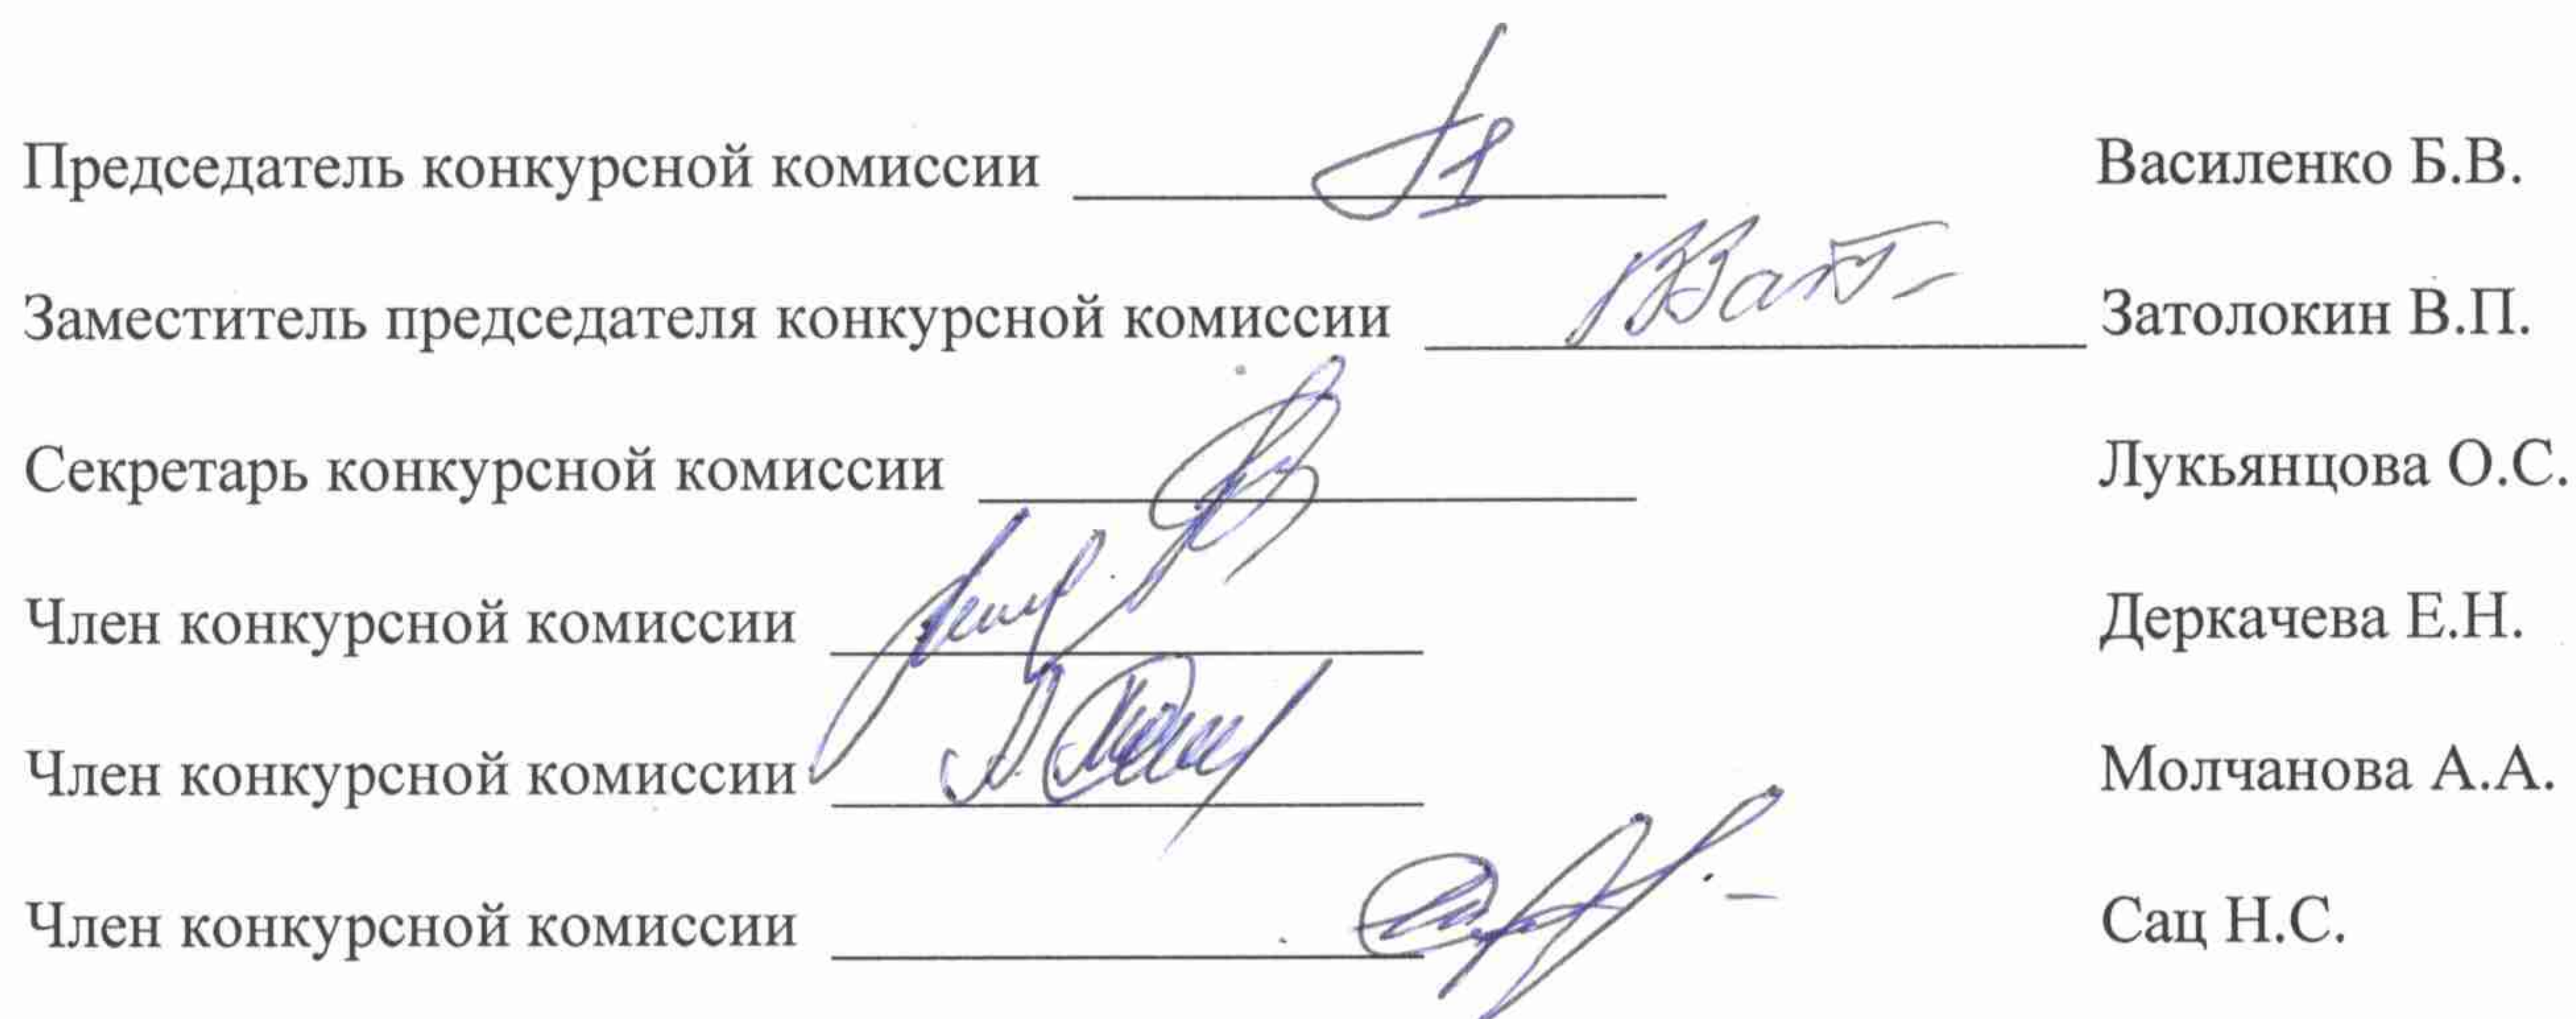 Председатель конкурсной комиссии Василенко Б.В.
Заместитель председателя конкурсной комиссии Затолокин В.П.
Секретарь конкурсной комиссии Лукьянцова О.С.
Член конкурсной комиссии Деркачева Е.Н.
Член конкурсной комиссии Молчанова А.А.
Член конкурсной комиссии Сац Н.С.